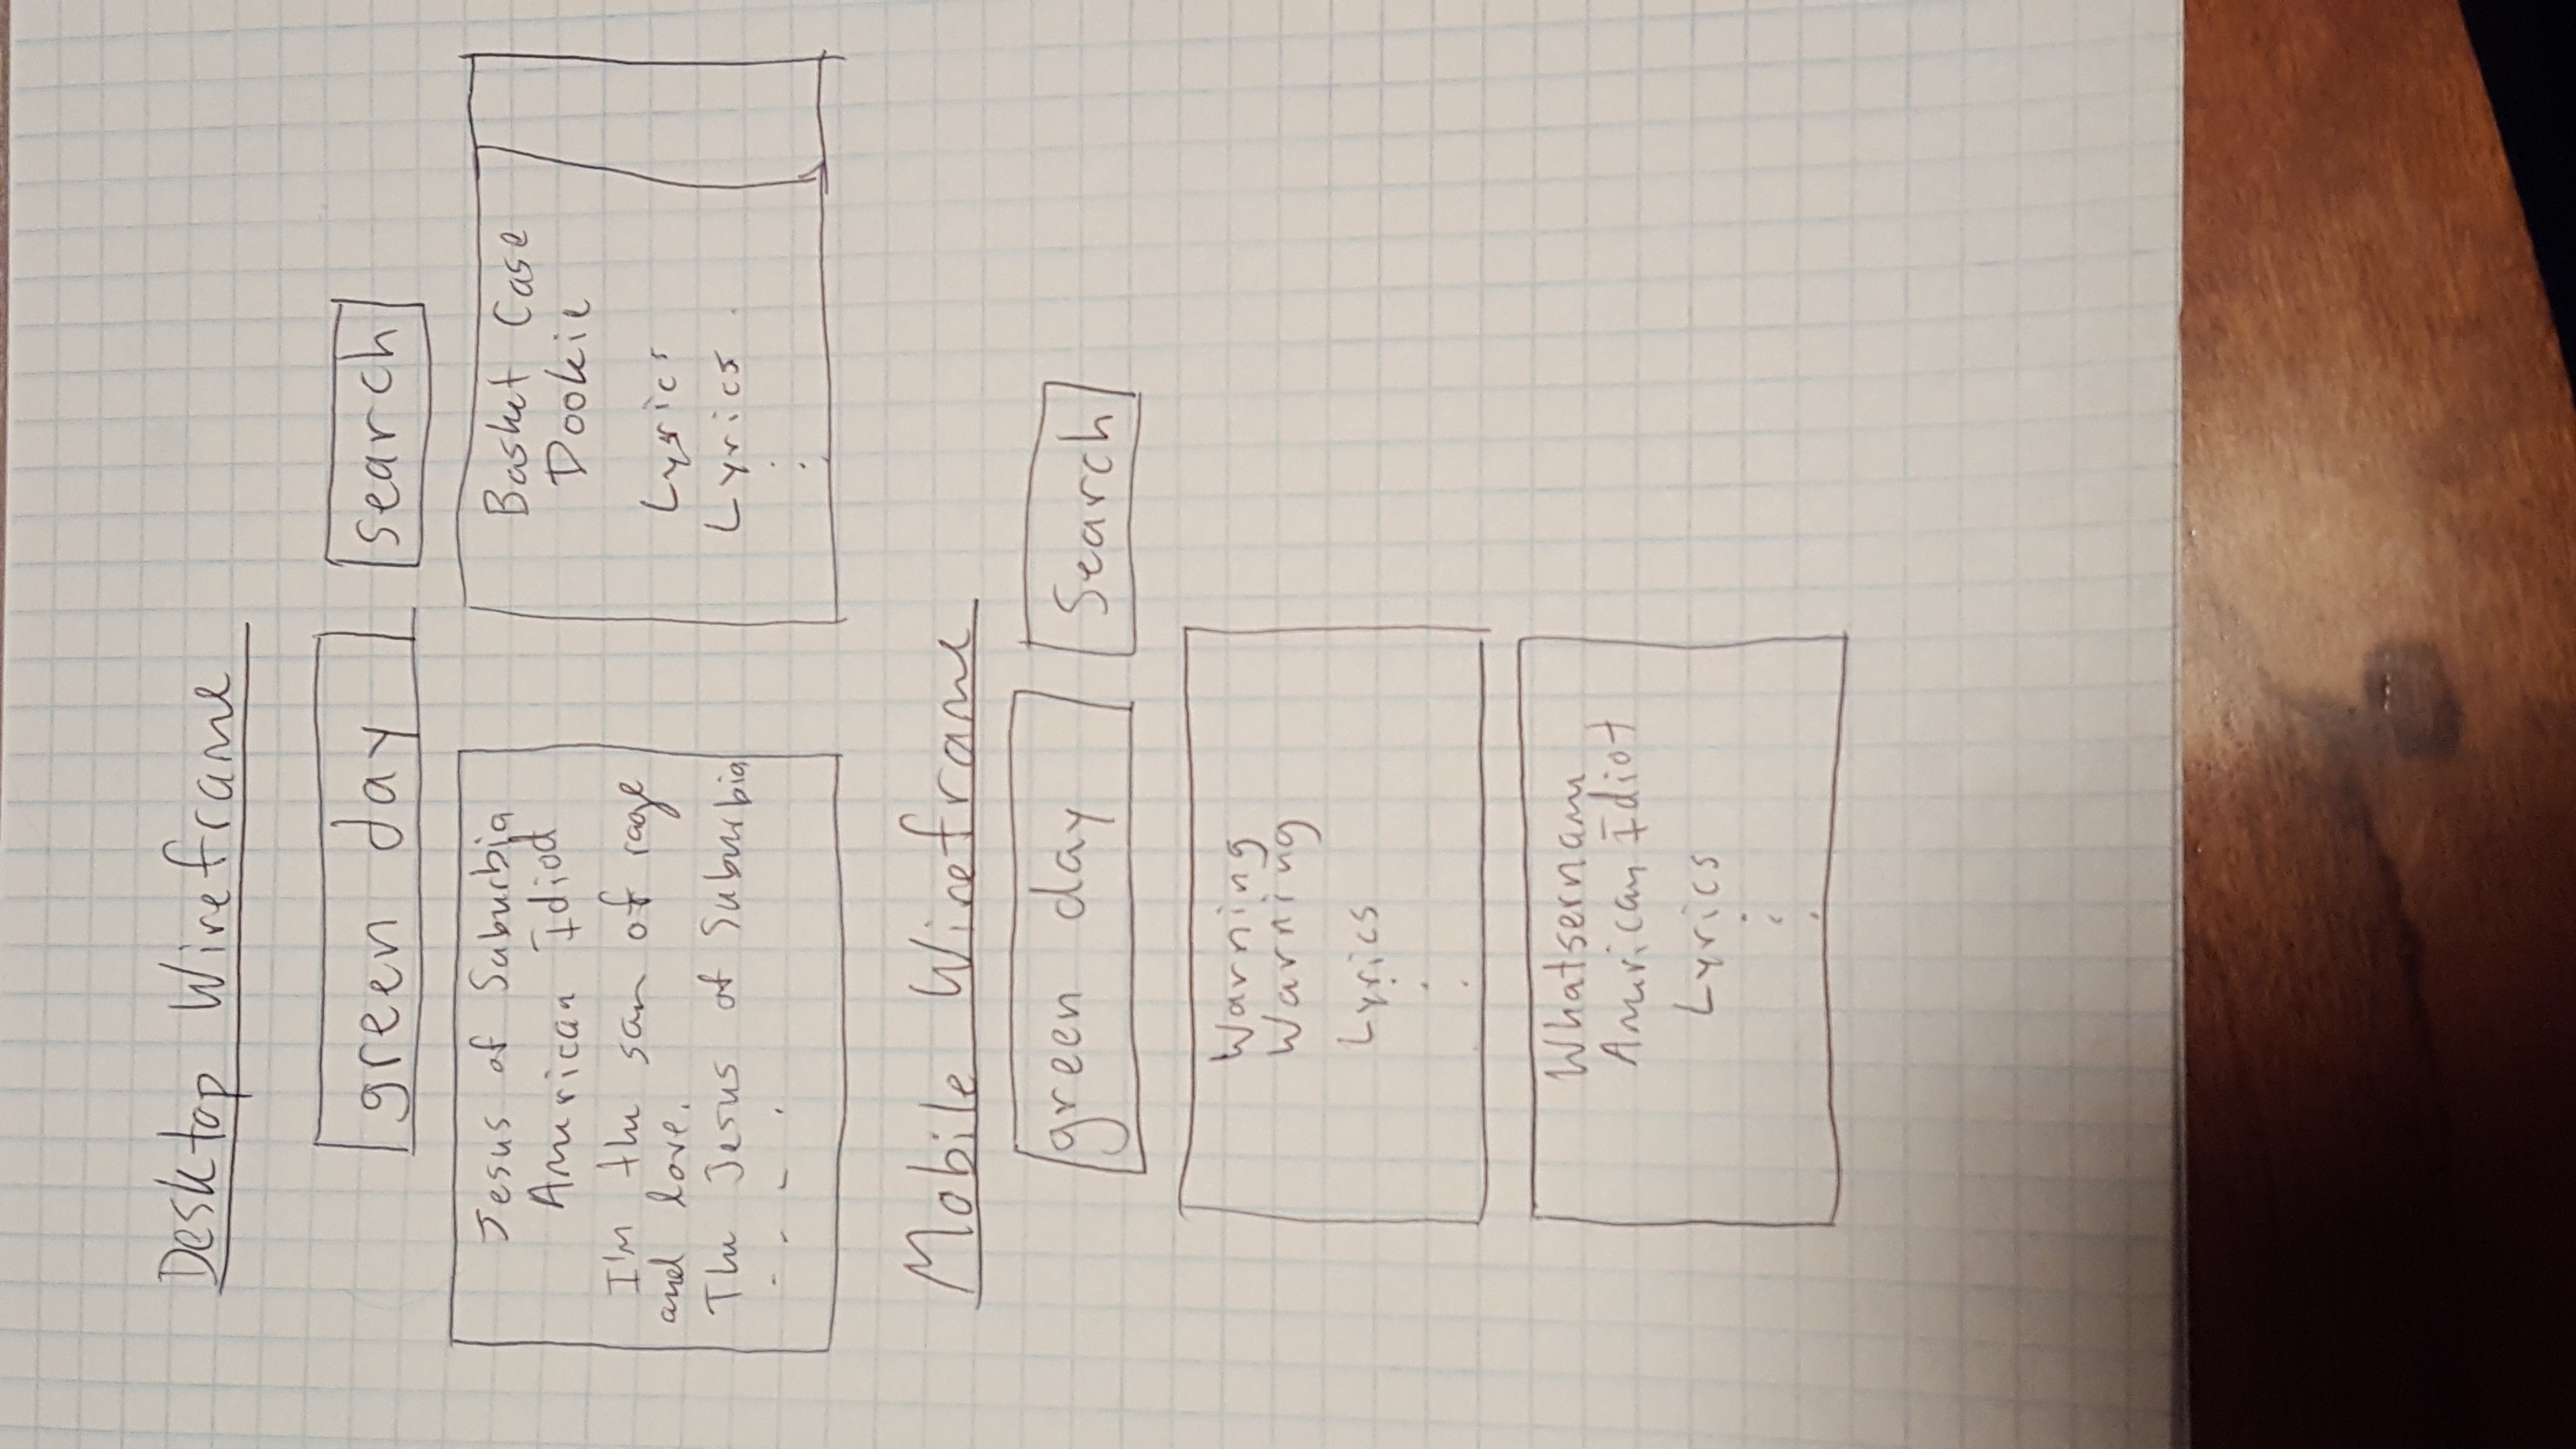 Desktop Wireframe
green day
search
Jesus of Suburbia
American Idiot
I'm the son of rage
and love.
The Jesus of Suburbia
. . . .
Basket Case
Dookie
Lyrics
Lyrics
Mobile Wireframe
green day
Search
Warning
Warning
Lyrics
Whatsername
American Idiot
Lyrics